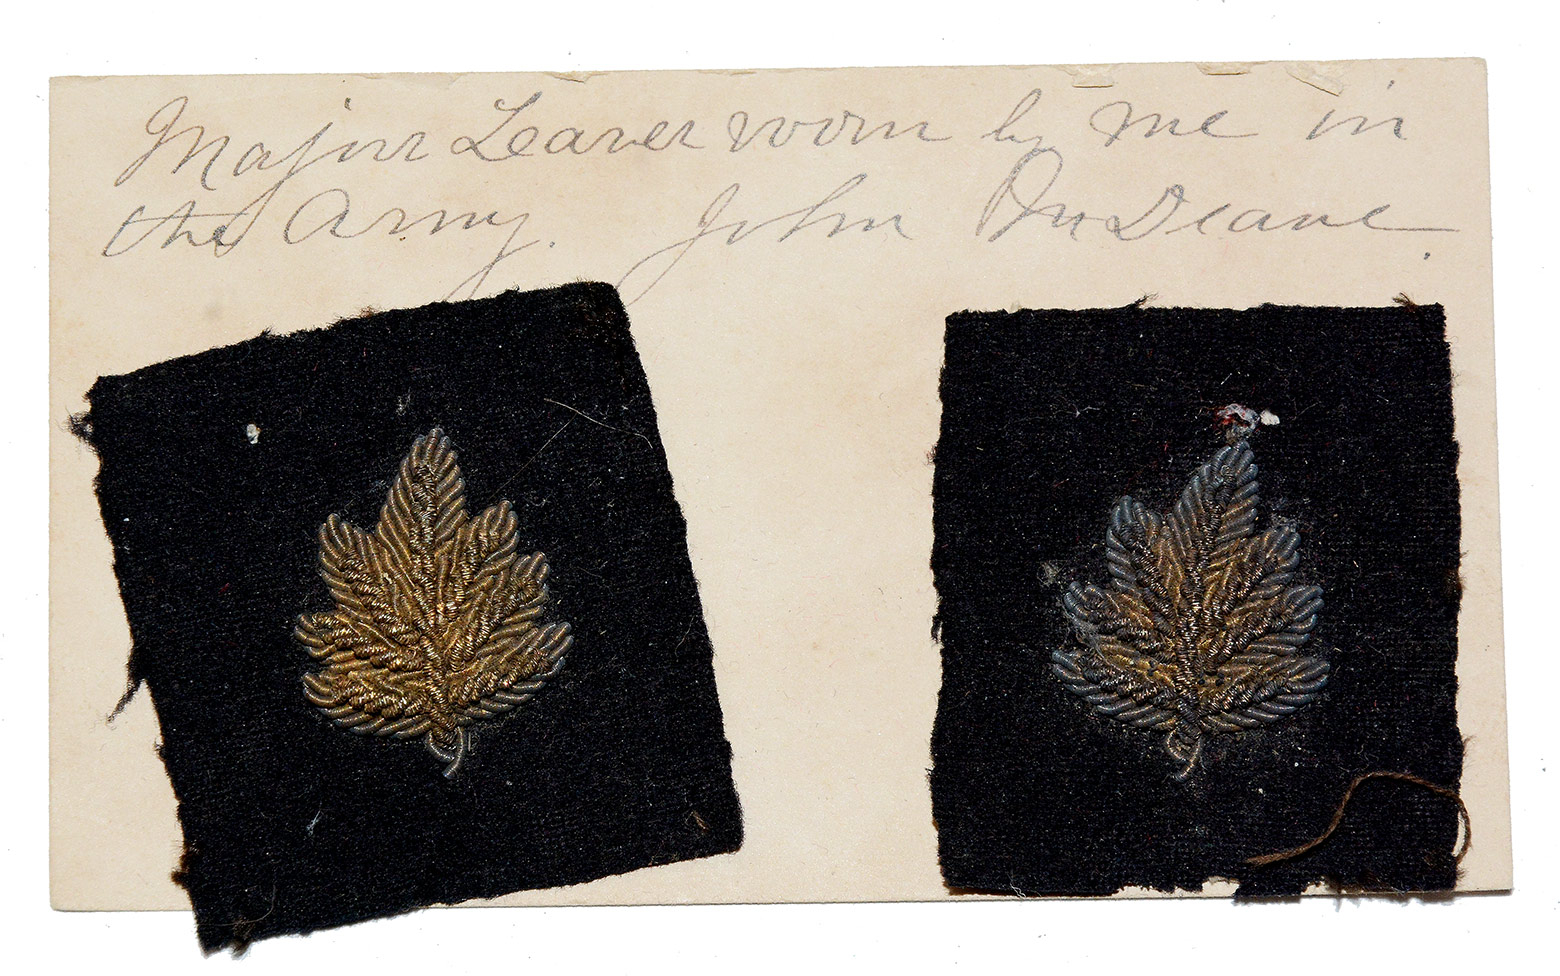 Major Leaves worn by me in
the Army. John M Deane.